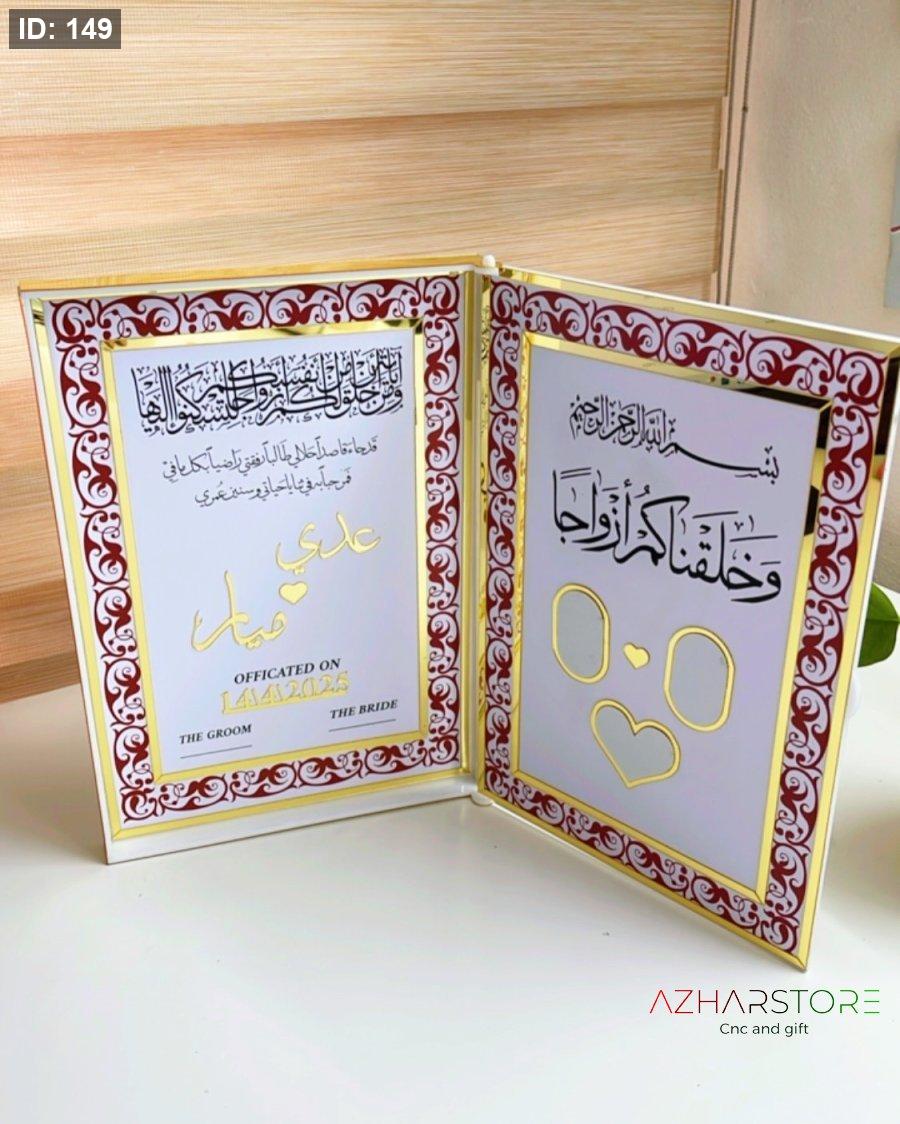 ID: 149
ومن آياته أن خلق لكم من أنفسكم أزواجا لتسكنوا إليها
قد جاء قاصداً حلالي طالباً رفقتي راضياً بكل ما في
فمرحبا به في ثنايا حياتي وسنين عمري
عدي
ميار
OFFICATED ON
14\4\2025
THE GROOM
THE BRIDE
بسم الله الرحمن الرحيم
وَخَلَقْنَاكُمْ أَزْوَاجًا
AZHARSTORE
Cnc and gift